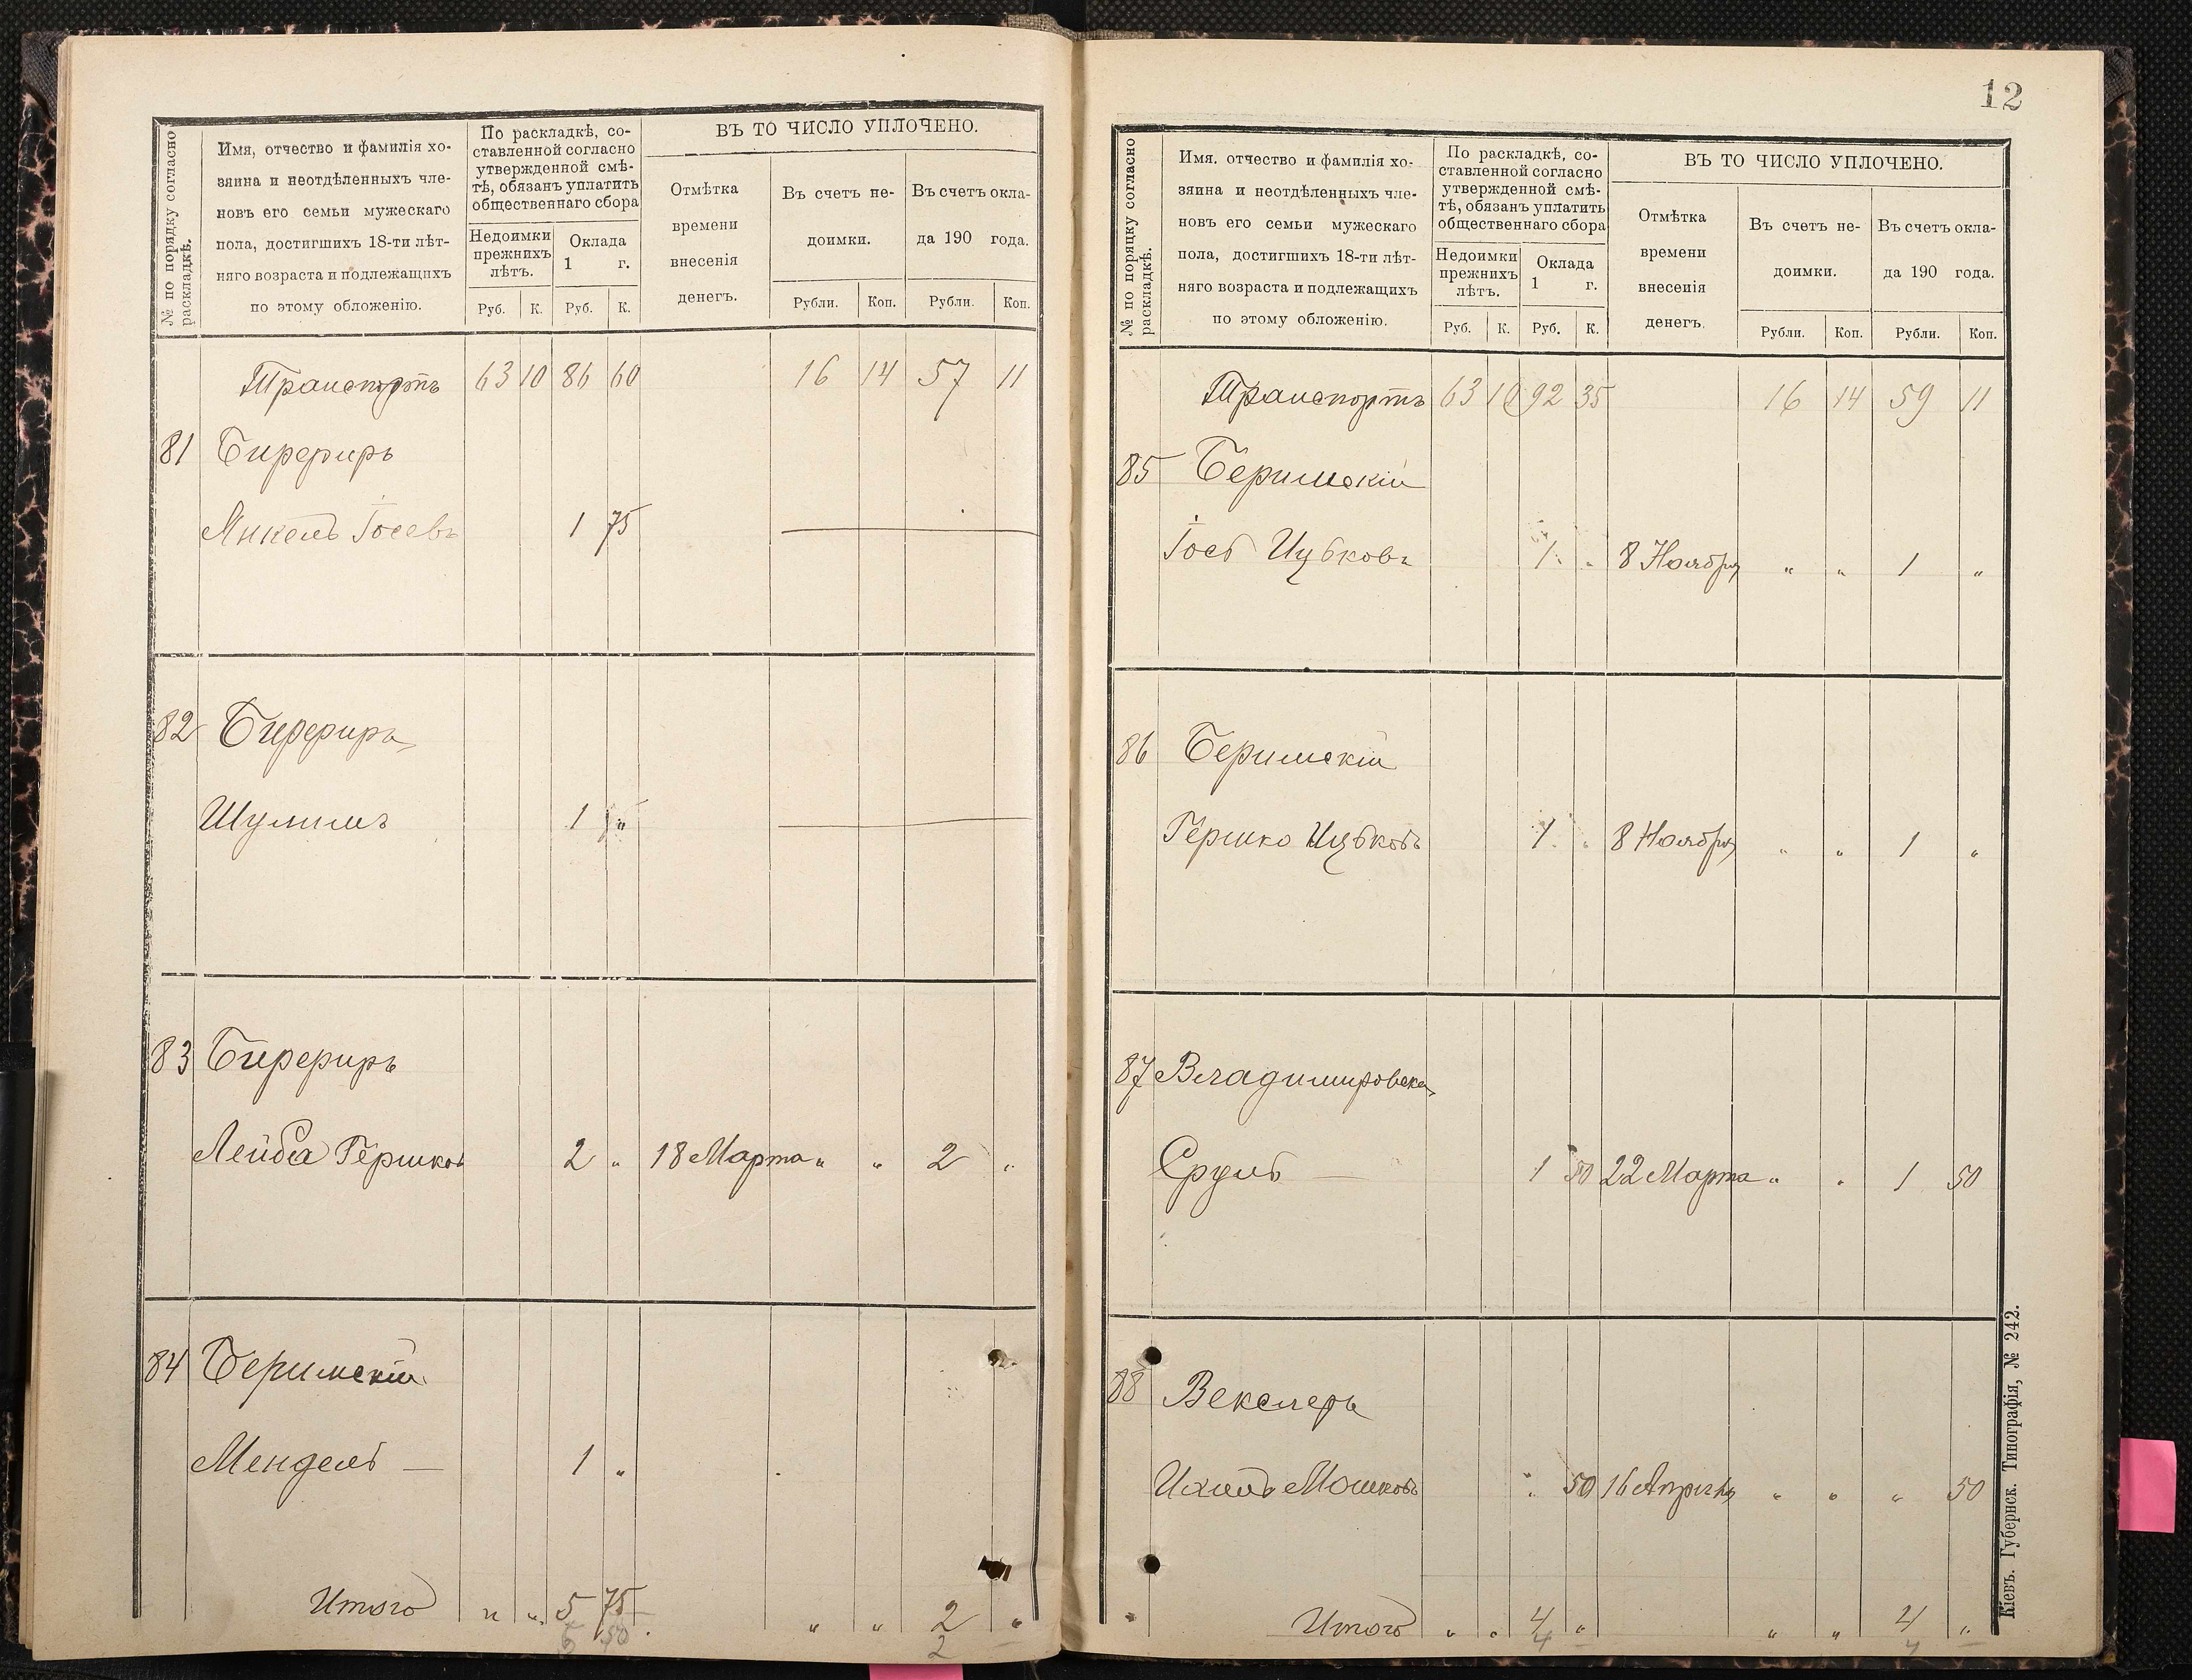 № по порядку согласно раскладкѣ.
Имя, отчество и фамилія хо-
зяина и неотдѣленныхъ чле-
новъ его семьи мужескаго
пола, достигшихъ 18-ти лѣт-
няго возраста и подлежащихъ
по этому обложенію.
По раскладкѣ, со-
ставленной согласно
утвержденной смѣ-
тѣ, обязанъ уплатить
общественнаго сбора
Недоимки
прежнихъ
лѣтъ.
Оклада
1 г.
Руб. К. Руб. К.
ВЪ ТО ЧИСЛО УПЛОЧЕНО.
Отмѣтка
времени
внесенія
денегъ.
Въ счетъ не-
доимки.
Въ счетъ окла-
да 190 года.
Рубли. Коп. Рубли. Коп.
Транспортъ 63 10 86 60 16 14 57 11
81 Бирериръ
Янкель Іосевъ 1 75
82 Бирериръ
Шулимъ 1 "
83 Бирериръ
Лейба Гершков 2 " 18 Марта " " 2 "
84 Беримскій
Мендель — 1 "
Итого " " 5 75 " " 2 "
5 50 2
12
№ по поряцку согласно раскладкѣ.
Имя. отчество и фамилія хо-
зяина и неотдѣленныхъ чле-
новъ его семьи мужескаго
пола, достигшихъ 18-ти лѣт-
няго возраста и подлежащихъ
по этому обложенію.
По раскладкѣ, со-
ставленной согласно
утвержденной смѣ-
тѣ, обязанъ уплатить
общественнаго сбора
Недоимки
прежнихъ
лѣтъ.
Оклада
1 г.
Руб. К. Руб. К.
ВЪ ТО ЧИСЛО УПЛОЧЕНО.
Отмѣтка
времени
внесенія
денегъ.
Въ счетъ не-
доимки.
Въ счетъ окла-
да 190 года.
Рубли. Коп. Рубли. Коп.
Транспортъ 63 10 92 35 16 14 59 11
85 Беримскій
Іось Ицьковъ 1 " 8 Ноября " " 1 "
86 Беримскій
Гершко Ицьковъ 1 " 8 Ноября " " 1 "
87 Владимировска
Сруль — 1 50 22 Марта " " 1 50
88 Векслеръ
Ихиль Мошковъ " 50 16 Апрѣля " " " 50
Итого " " 4 " " " 4 "
4 4
Кіевъ. Губернск. Типографія, № 242.